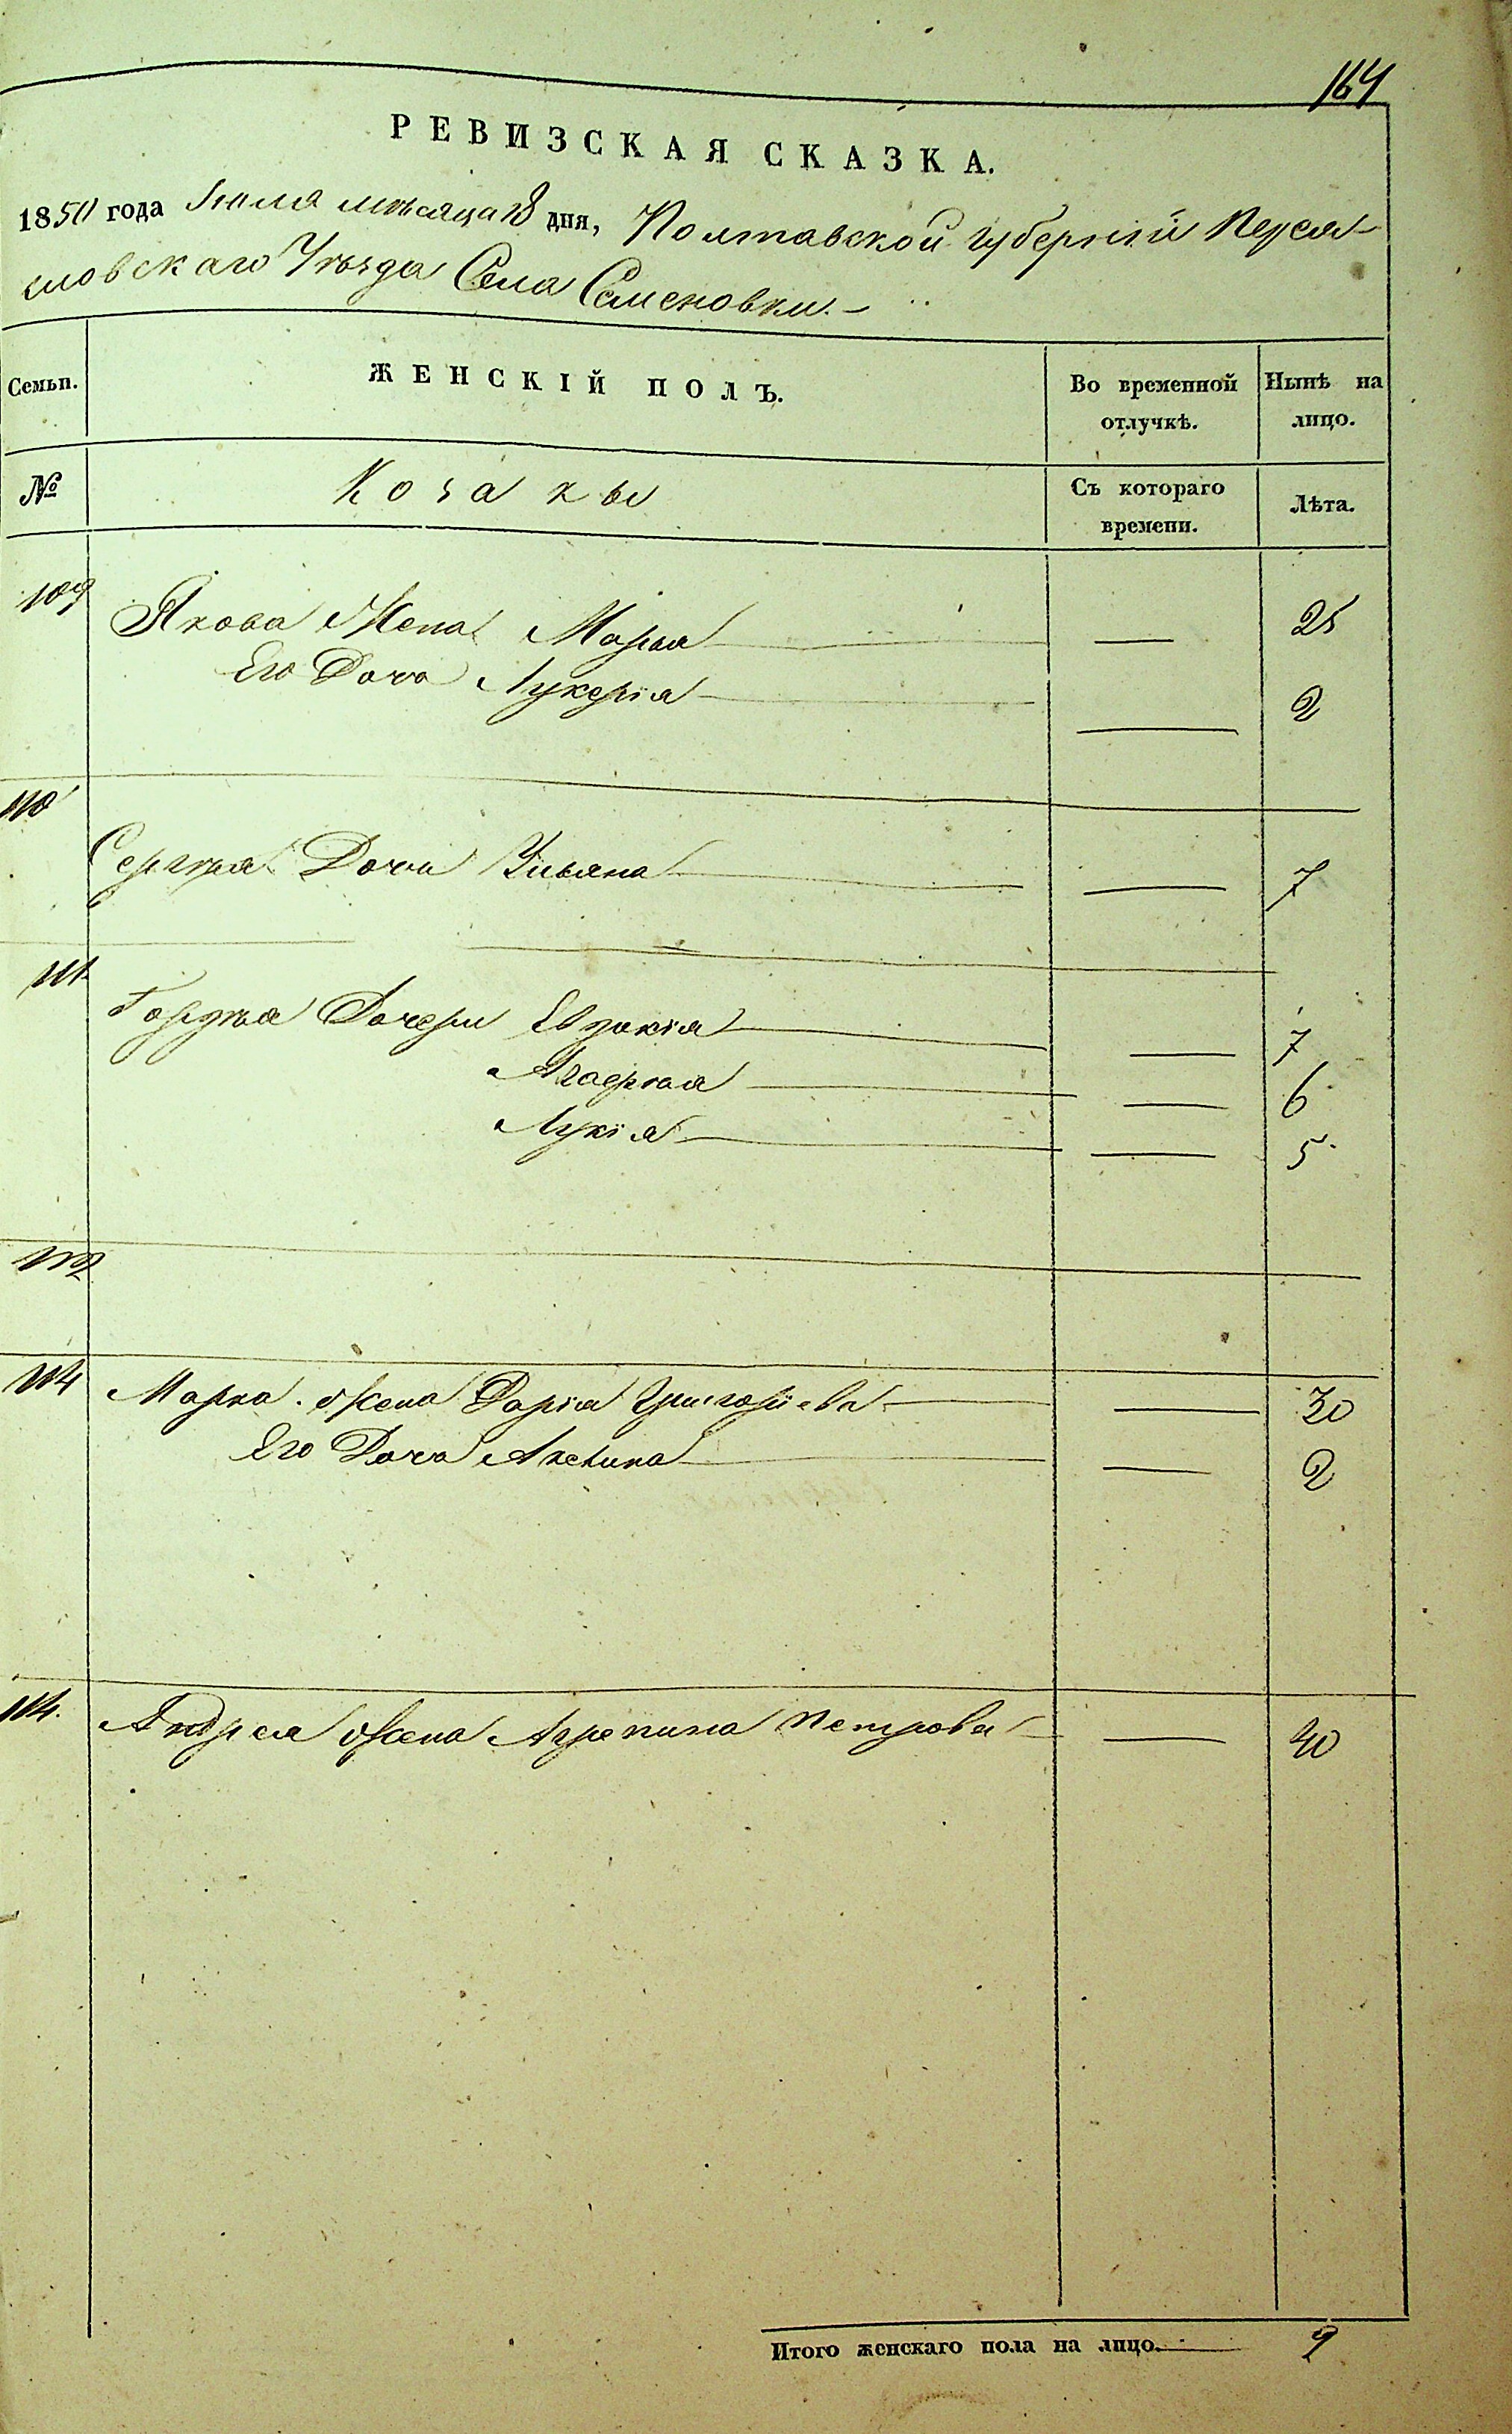 164
РЕВИЗСКАЯ СКАЗКА.
1850 года Июля мѣсяца 18 дня, Полтавской губернiи Переяс-
ловскаго Уѣзда Села Семеновки.
Семьи. ЖЕНСКIЙ ПОЛЪ. Во временной отлучкѣ. Нынѣ на лицо.
№ Козаки Съ котораго времени. Лѣта.
109 Якова Жена Марья — 25
Его Дочь Лукерiя — 2
110
Сергѣя Дочь Ульяна — 7
111
Гордѣя Дочери Евдокiя — 7
— 6
Лукiя — 5
112
114 Марка жена Дарiя Григорiева — 30
Его Дочь Акелина — 2
114. Андрея жена Агрепина Петрова — 40
Итого женскаго пола на лицо. — 9